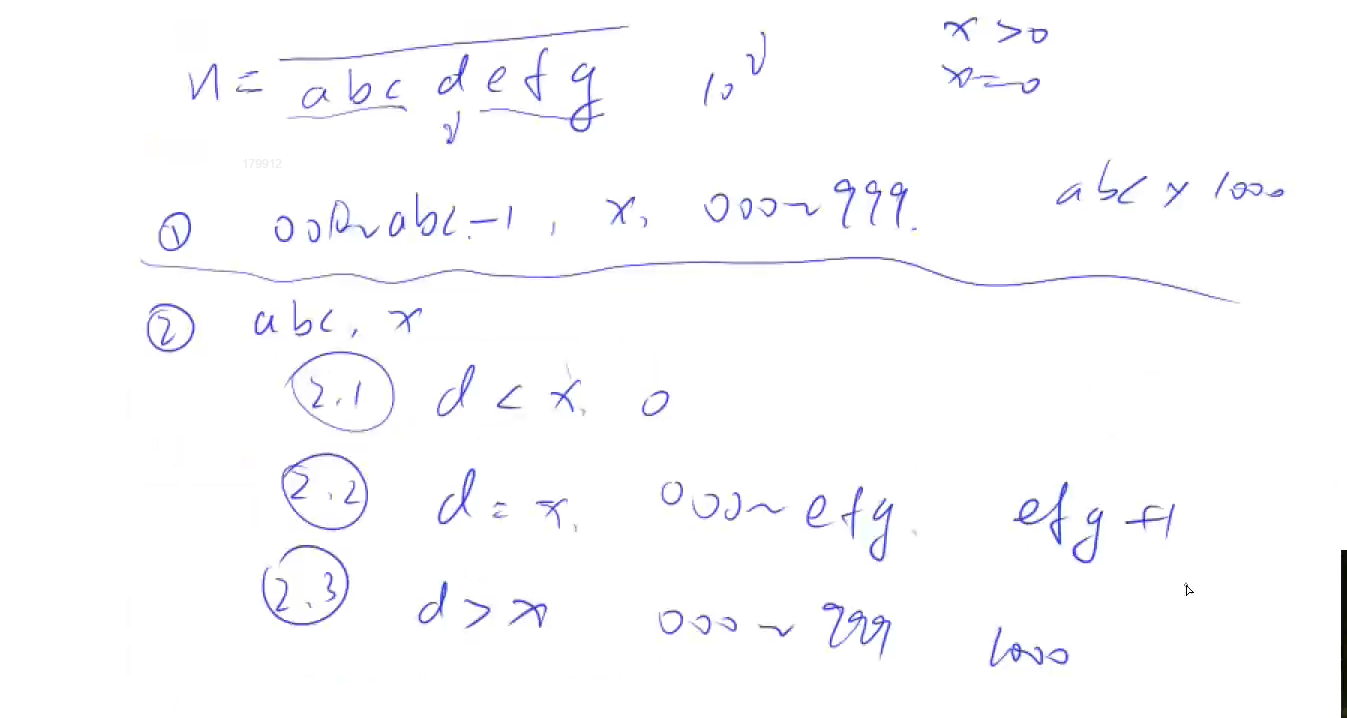 n = abc d efg 10^v x > 0
x = 0
v
179912
① 000~abc-1, x, 000~999. abc × 1000
② abc, x
2.1 d < x, 0
2.2 d = x, 000~efg. efg+1
2.3 d > x 000~999 1000